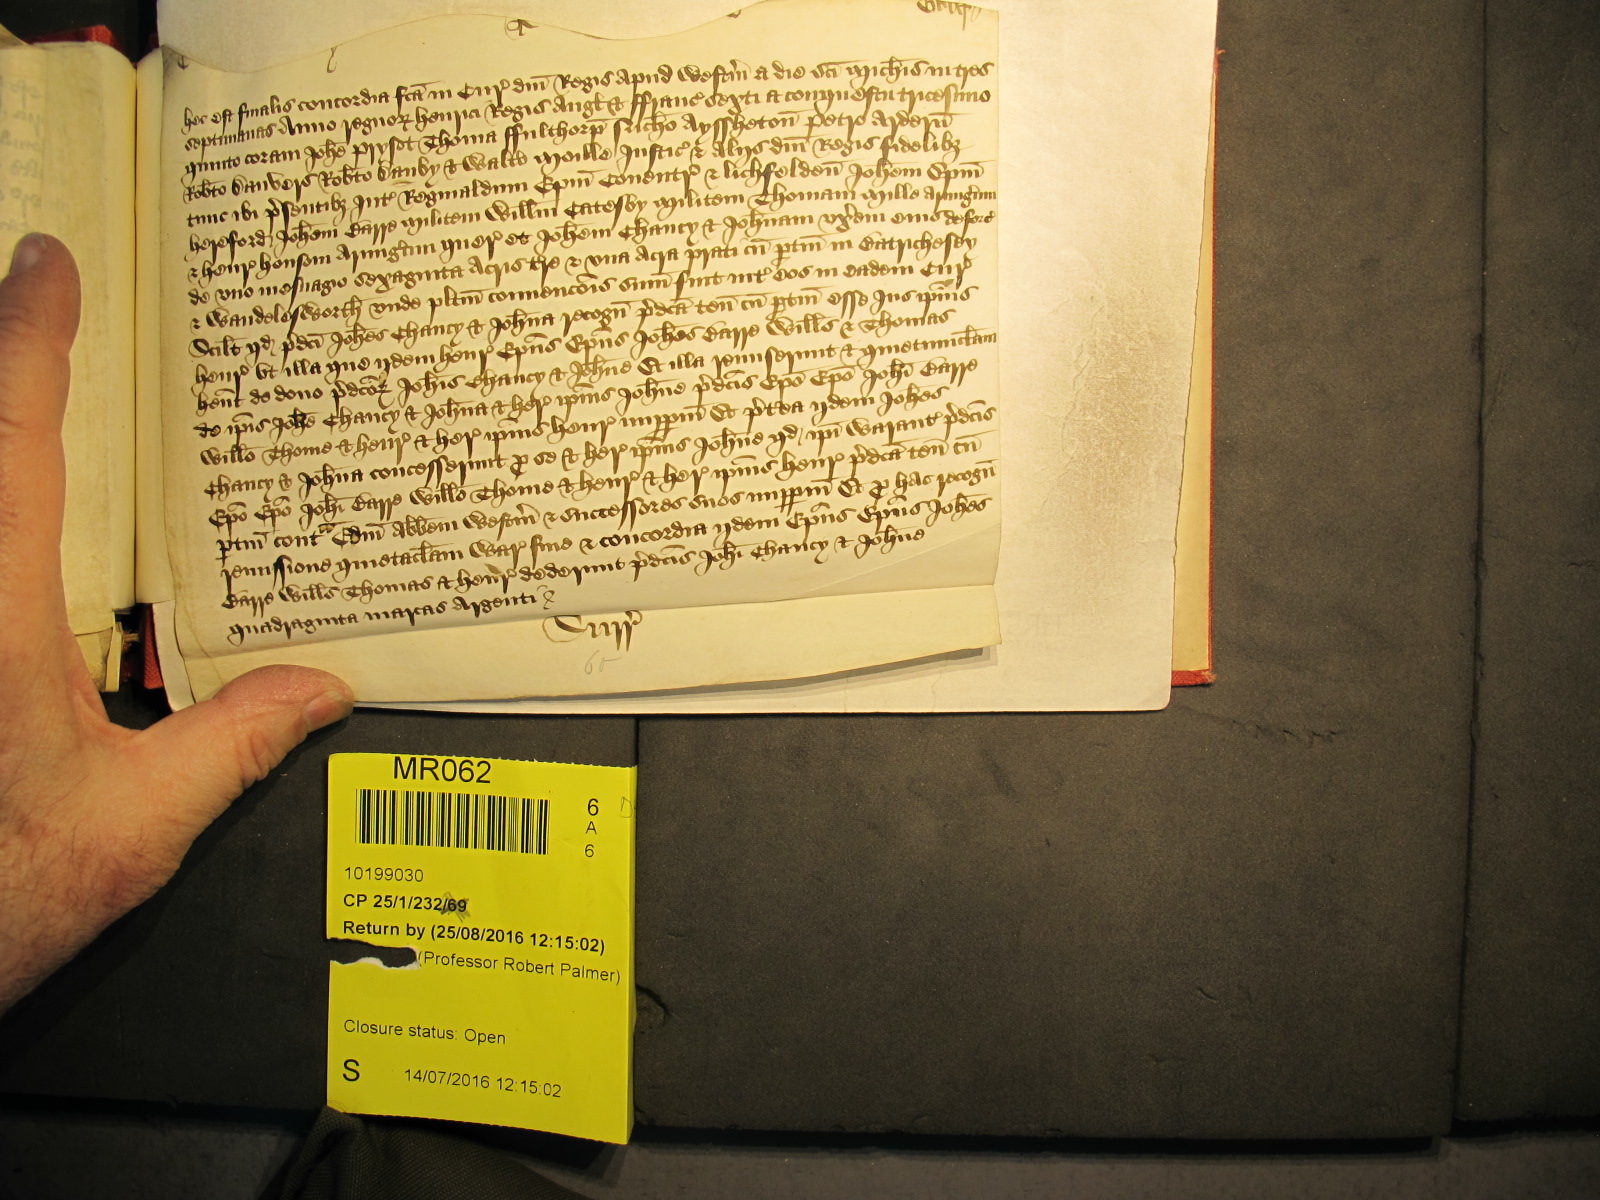 hec est finalis concordia fc̄a in Cur' dn̄i Regis Apud Westm̄ a die sc̄i Mich̄is in tres
septimanas Anno regnoꝝ henrici Regis Angl̄ & ffranc' sexti a conquestu tricesimo
quinto coram Joh̄e prysot Thoma ffulthorp̄ Nich̄o Ayssheton̄ Petro Ardern̄
Rob̄to Danvers Rob̄to Danby & Walt̄o Moille Justic' & Alijs dn̄i Regis fidelibȝ
tunc ibi p̄sentibȝ Int' Reginaldum Ep̄m Coventr' & lichfelden̄ Joh̄em Ep̄m
hereford' Joh̄em Barre Militem Will̄m Catesby Militem Thomam Mille Armig̃um
& henr' honsom Armig̃um quer' et Joh̄em Chancy & Joh̄nam vx̄em eius deforc'
de vno mesuagio sexaginta Acris tr̄e & vna Acra prati cū ptin̄ in Batrichesby
& Wandelesworth vnde pl̄itm̄ convenc̄ois sum̄ fuit int' eos in eadem Cur'
Scil̄t qd' p̄dc̄i Joh̄es Chancy & Joh̄na recogn̄ p̄dc̄a ten̄ cū ptin̄ esse Jus ip̄ius
henr' vt illa que ijdem henr' Ep̄us Ep̄us Joh̄es Barre Will̄s & Thomas
hent̄ de dono p̄dc̄oꝝ Joh̄is Chancy & Joh̄ne Et illa remiserunt & quietumclam̄
de ip̄is Joh̄e Chancy & Joh̄na & her' ip̄ius Joh̄ne p̄dc̄is Ep̄o Ep̄o Joh̄i Barre
Will̄o Thome & henr' & her' ip̄ius henr' imp̄p̄m Et p̄t̄ea ijdem Joh̄es
Chancy & Joh̄na concesserunt ꝑ se & her' ip̄ius Joh̄ne qd' ip̄i Warant' p̄dc̄is
Ep̄o Ep̄o Joh̄i Barre Will̄o Thome & henr' & her' ip̄ius henr' p̄dc̄a ten̄ cū
ptin̄ cont̄ Edm̄ Abb̄em Westm̄ & Successores suos imp̄p̄m Et ꝑ hac recogn̄
remissione quietaclam̄ War' fine & concordia ijdem Ep̄us Ep̄us Joh̄es
Barre Will̄s Thomas & henr' dederunt p̄dc̄is Joh̄i Chancy & Joh̄ne
quadraginta marcas Argenti
Surr'
60
MR062
6
A
6
10199030
CP 25/1/232/69
Return by (25/08/2016 12:15:02)
(Professor Robert Palmer)
Closure status: Open
S 14/07/2016 12:15:02